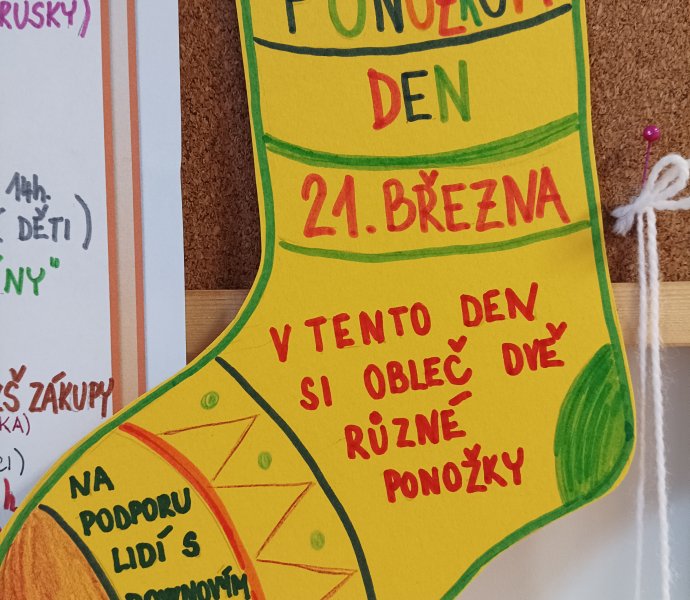 RUSKY)
14h.
DĚTI)
NY"
ZŠ ZÁKUPY
PONOŽKOVÝ
DEN
21. BŘEZNA
V TENTO DEN
SI OBLEČ DVĚ
RŮZNÉ
PONOŽKY
NA
PODPORU
LIDÍ S
DOWNOVÝM